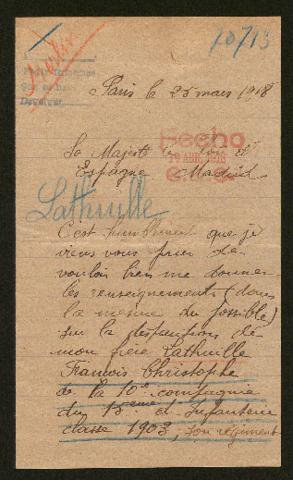 10/13
Paris le 25 mars 1918
Sa Majesté le Roi d'
Espagne Madrid
Hecho
Lathuille
C'est humblement que je
viens vous prier de
vouloir bien me donner
les renseignements (dans
la mesure du possible)
sur la disparition de
mon frère Lathuille
François Christophe
de la 10e compagnie
du d'Infanterie
classe 1903, son régiment